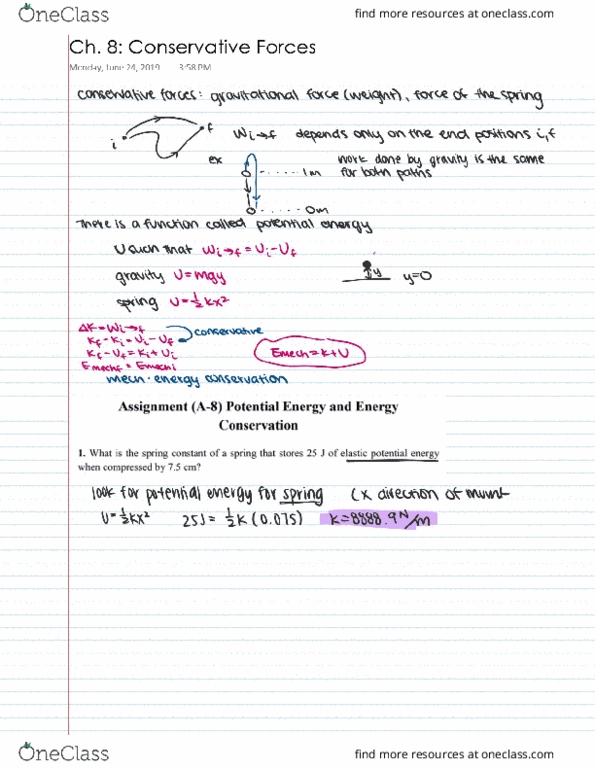 OneClass
find more resources at oneclass.com
Ch. 8: Conservative Forces
Monday, June 24, 2019 3:58 PM
conservative forces: gravitational force (weight), force of the spring
i f
Wi→f depends only on the end positions i, f
ex
1m
work done by gravity is the same
for both paths
0m
There is a function called potential energy
U such that Wi→f = Ui - Uf
gravity U=mgy
y y=0
spring U=½kx²
ΔK=Wi→f
Kf - Ki = Ui - Uf
conservative
Kf - Uf = Ki + Ui
Emech=K+U
Emechf = Emechi
mech. energy conservation
Assignment (A-8) Potential Energy and Energy
Conservation
1. What is the spring constant of a spring that stores 25 J of elastic potential energy
when compressed by 7.5 cm?
look for potential energy for spring (x direction of
U=½kx² 25J= ½k(0.075) k=8888.9 N/m
OneClass
find more resources at oneclass.com